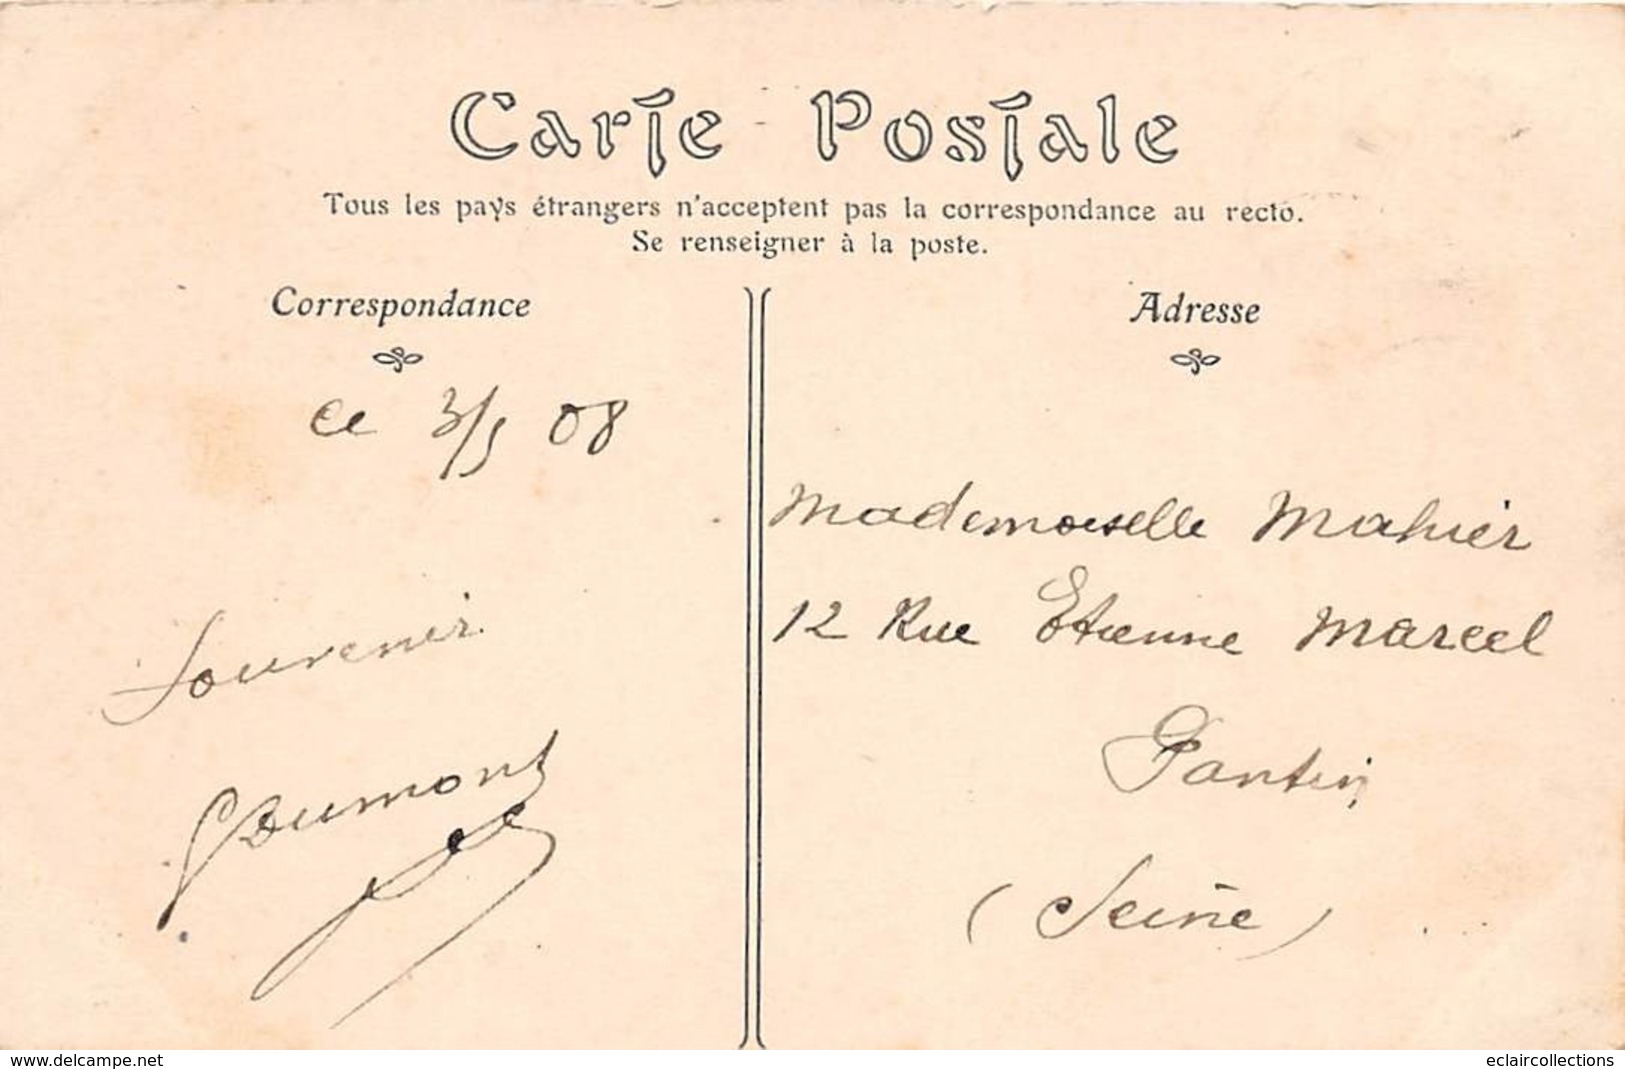 Carte Postale
Tous les pays étrangers n'acceptent pas la correspondance au recto.
Se renseigner à la poste.
Correspondance
Ce 3/5 08
Souvenir
GDumont
Adresse
Mademoiselle Mahier
12 Rue Etienne Marcel
Pantin
(Seine)
www.delcampe.net
eclaircollections